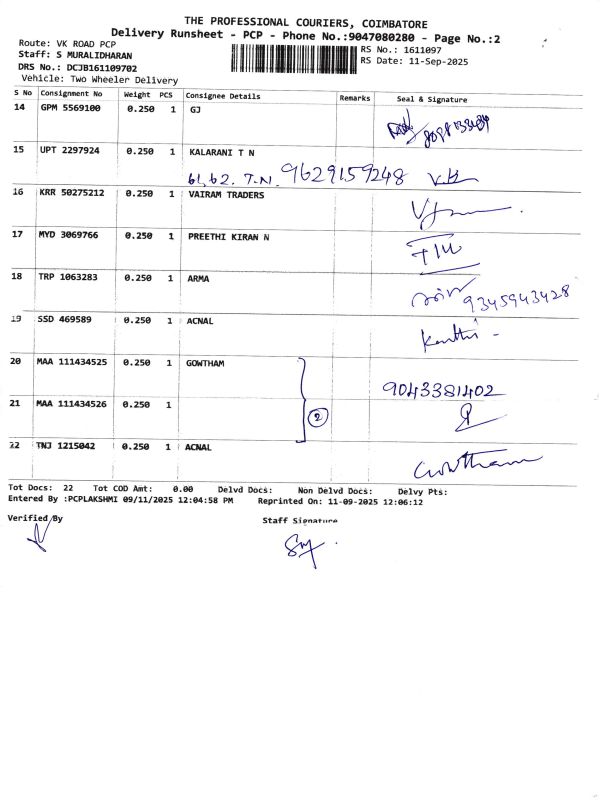 THE PROFESSIONAL COURIERS, COIMBATORE
Delivery Runsheet - PCP - Phone No.:9047080280 - Page No.:2
Route: VK ROAD PCP
Staff: S MURALIDHARAN
DRS No.: DCJB161109702
Vehicle: Two Wheeler Delivery
RS No.: 1611097
RS Date: 11-Sep-2025
S No Consignment No Weight PCS Consignee Details Remarks Seal & Signature
14 GPM 5569100 0.250 1 GJ
15 UPT 2297924 0.250 1 KALARANI T N
61,62. T.N. 9629159248
16 KRR 50275212 0.250 1 VAIRAM TRADERS
17 MYD 3069766 0.250 1 PREETHI KIRAN N
18 TRP 1063283 0.250 1 ARMA
9345943428
19 SSD 469589 0.250 1 ACNAL
20 MAA 111434525 0.250 1 GOWTHAM
9043381402
21 MAA 111434526 0.250 1
2
22 TNJ 1215042 0.250 1 ACNAL
Gowtham
Tot Docs: 22 Tot COD Amt: 0.00 Delvd Docs: Non Delvd Docs: Delvy Pts:
Entered By :PCPLAKSHMI 09/11/2025 12:04:58 PM Reprinted On: 11-09-2025 12:06:12
Verified By
Staff Signature